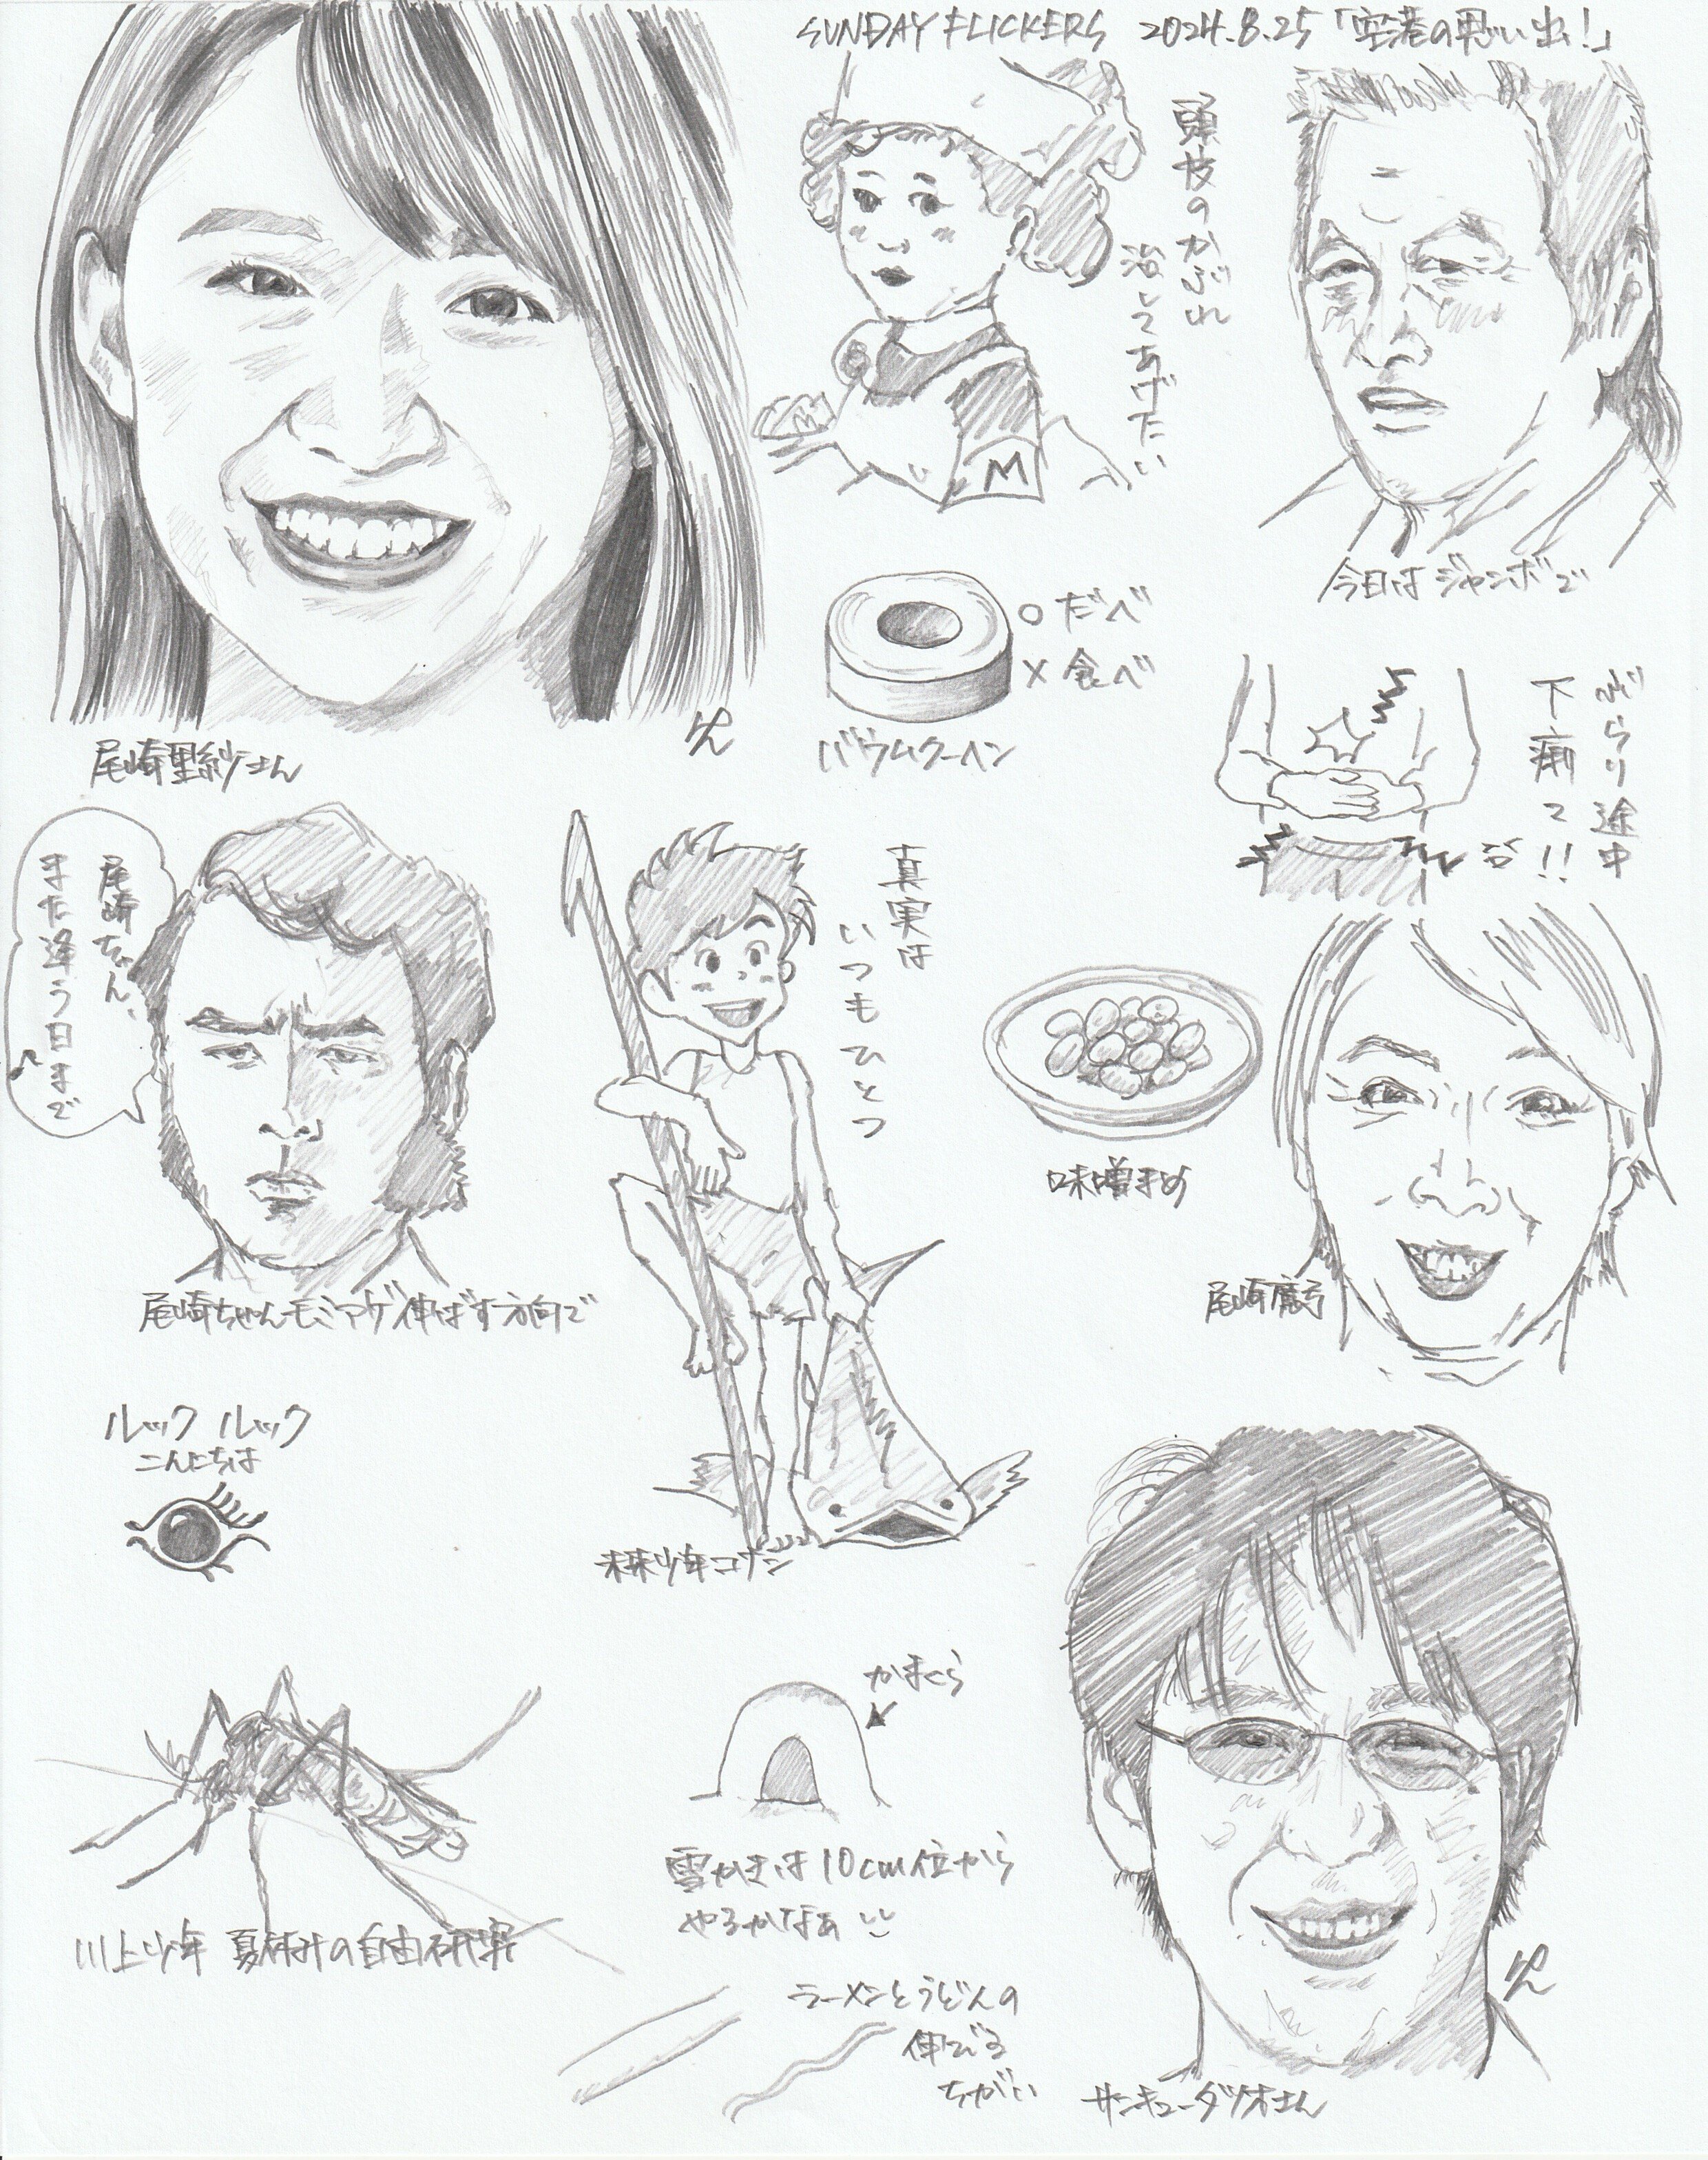 SUNDAY FLICKERS 2024.8.25「空港の思い出！」
頭皮のかぶれ
治してあげたい
M
M
今日はジャンボで
○だべ
×食べ
バウムクーヘン
ぶらり途中
下痢で!!
尾崎里紗さん
尾崎ちゃん、
また逢う日まで♪
尾崎ちゃんモミアゲ伸ばす方向で
真実は
いつもひとつ
未来少年コナン
味噌まめ
尾崎魔弓
ルック ルック
こんにちは
川上少年 夏休みの自由研究
かまくら
雪かきは10cm位から
やるかなぁ
ラーメンとうどんの
伸びる
ちがい
サンキュータツオさん